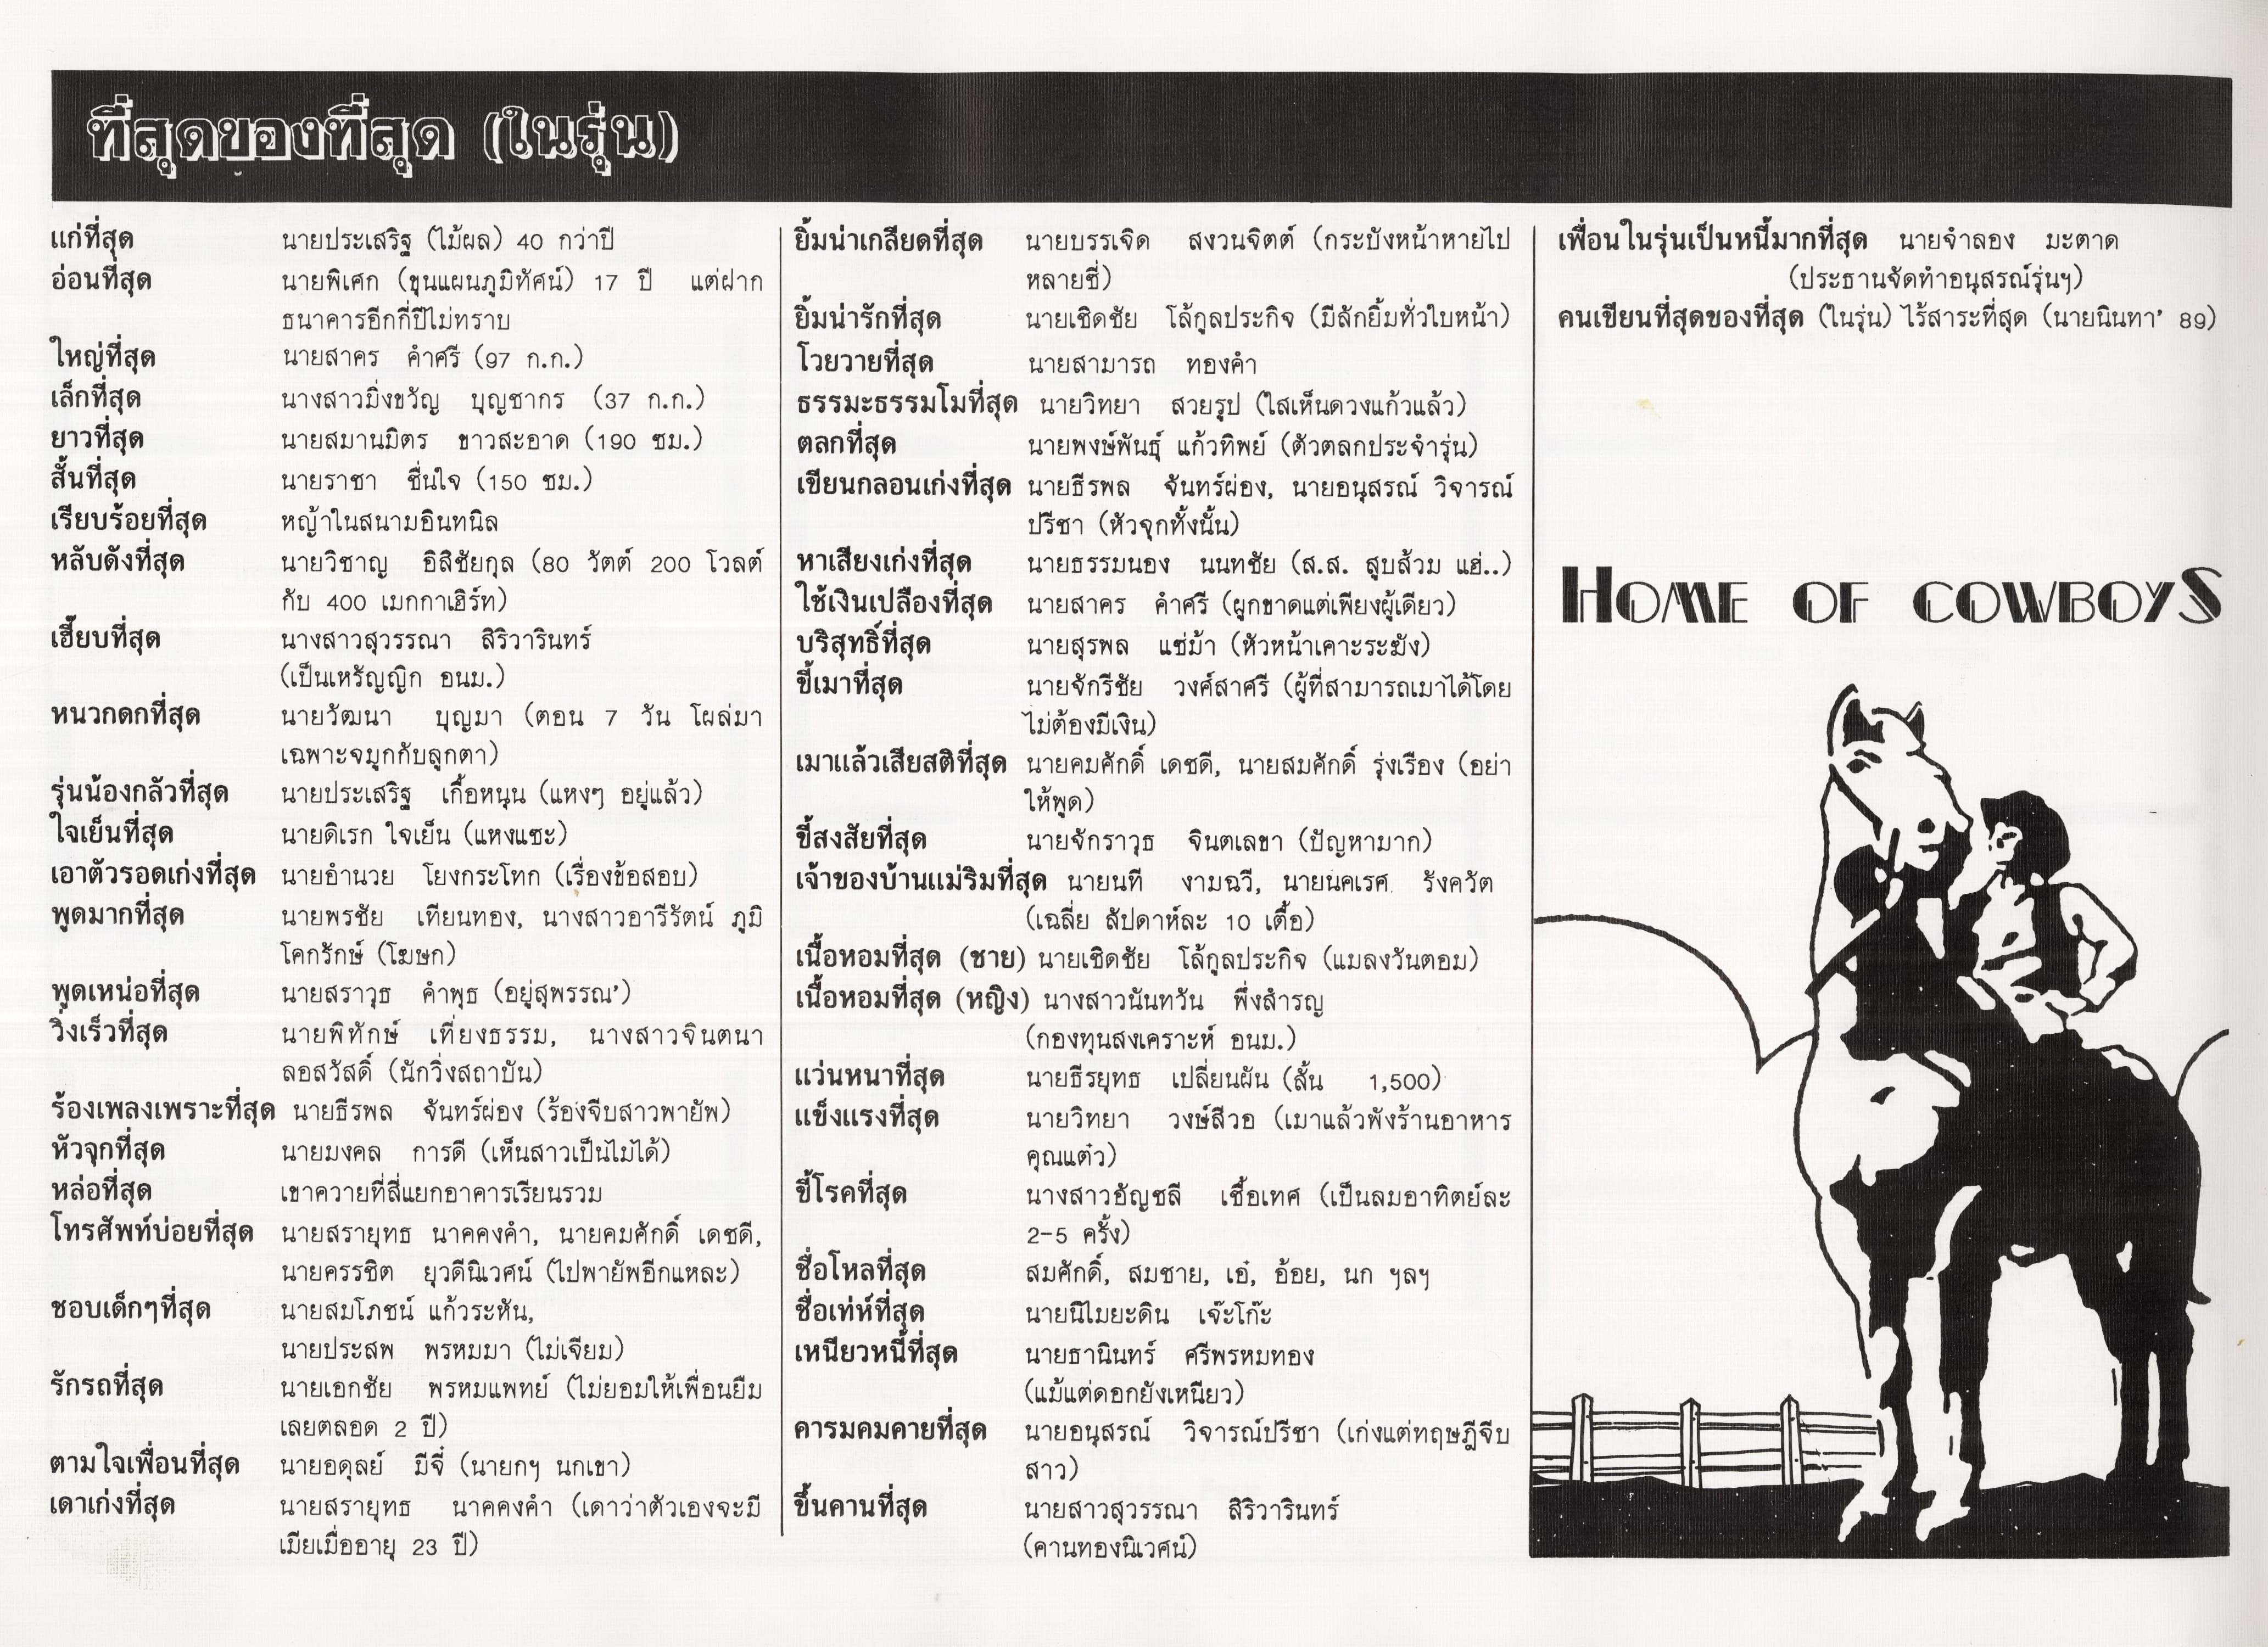 ที่สุดของที่สุด (ในรุ่น)
แก่ที่สุด นายประเสริฐ (ไม้ผล) 40 กว่าปี
อ่อนที่สุด นายพิเศก (ขุนแผนภูมิทัศน์) 17 ปี แต่ฝาก
ธนาคารอีกกี่ปีไม่ทราบ
ใหญ่ที่สุด นายสาคร คำศรี (97 ก.ก.)
เล็กที่สุด นางสาวมิ่งขวัญ บุญชากร (37 ก.ก.)
ยาวที่สุด นายสมานมิตร ขาวสะอาด (190 ซม.)
สั้นที่สุด นายราชา ชื่นใจ (150 ซม.)
เรียบร้อยที่สุด หญ้าในสนามอินทนิล
หลับดังที่สุด นายวิชาญ อิสิชัยกุล (80 วัตต์ 200 โวลต์
กับ 400 เมกกาเฮิร์ท)
เฮี๊ยบที่สุด นางสาวสุวรรณา สิริวารินทร์
(เป็นเหรัญญิก อนม.)
หนวกดกที่สุด นายวัฒนา บุญมา (ตอน 7 วัน โผล่มา
เฉพาะจมูกกับลูกตา)
รุ่นน้องกลัวที่สุด นายประเสริฐ เกื้อหนุน (แหงๆ อยู่แล้ว)
ใจเย็นที่สุด นายดิเรก ใจเย็น (แหงแซะ)
เอาตัวรอดเก่งที่สุด นายอำนวย โยงกระโทก (เรื่องข้อสอบ)
พูดมากที่สุด นายพรชัย เทียนทอง, นางสาวอารีรัตน์ ภูมิ
โคกรักษ์ (โฆษก)
พูดเหน่อที่สุด นายสราวุธ คำพุธ (อยู่สุพรรณ’)
วิ่งเร็วที่สุด นายพิทักษ์ เที่ยงธรรม, นางสาวจินตนา
ลอสวัสดิ์ (นักวิ่งสถาบัน)
ร้องเพลงเพราะที่สุด นายธีรพล จันทร์ผ่อง (ร้องจีบสาวพายัพ)
หัวจุกที่สุด นายมงคล การดี (เห็นสาวเป็นไม่ได้)
หล่อที่สุด เขาควายที่สี่แยกอาคารเรียนรวม
โทรศัพท์บ่อยที่สุด นายสรายุทธ นาคคงคำ, นายคมศักดิ์ เดชดี,
นายครรชิต ยุวดีนิเวศน์ (ไปพายัพอีกแหละ)
ชอบเด็กๆที่สุด นายสมโภชน์ แก้วระหัน,
นายประสพ พรหมมา (ไม่เจียม)
รักรถที่สุด นายเอกชัย พรหมแพทย์ (ไม่ยอมให้เพื่อนยืม
เลยตลอด 2 ปี)
ตามใจเพื่อนที่สุด นายอดุลย์ มีจี๋ (นายกฯ นกเขา)
เดาเก่งที่สุด นายสรายุทธ นาคคงคำ (เดาว่าตัวเองจะมี
เมียเมื่ออายุ 23 ปี)
ยิ้มน่าเกลียดที่สุด นายบรรเจิด สงวนจิตต์ (กระบังหน้าหายไป
หลายซี่)
ยิ้มน่ารักที่สุด นายเชิดชัย โล้กูลประกิจ (มีลักยิ้มทั่วใบหน้า)
โวยวายที่สุด นายสามารถ ทองคำ
ธรรมะธรรมโมที่สุด นายวิทยา สวยรูป (ใสเห็นดวงแก้วแล้ว)
ตลกที่สุด นายพงษ์พันธุ์ แก้วทิพย์ (ตัวตลกประจำรุ่น)
เขียนกลอนเก่งที่สุด นายธีรพล จันทร์ผ่อง, นายอนุสรณ์ วิจารณ์
ปรีชา (หัวจุกทั้งนั้น)
หาเสียงเก่งที่สุด นายธรรมนอง นนทชัย (ส.ส. สูบส้วม แฮ่..)
ใช้เงินเปลืองที่สุด นายสาคร คำศรี (ผูกขาดแต่เพียงผู้เดียว)
บริสุทธิ์ที่สุด นายสุรพล แซ่ม้า (หัวหน้าเคาะระฆัง)
ขี้เมาที่สุด นายจักรีชัย วงศ์สาศรี (ผู้ที่สามารถเมาได้โดย
ไม่ต้องมีเงิน)
เมาแล้วเสียสติที่สุด นายคมศักดิ์ เดชดี, นายสมศักดิ์ รุ่งเรือง (อย่า
ให้พูด)
ขี้สงสัยที่สุด นายจักราวุธ จินตเลขา (ปัญหามาก)
เจ้าของบ้านแม่ริมที่สุด นายนที งามฉวี, นายนคเรศ รังควัต
(เฉลี่ย สัปดาห์ละ 10 เตื้อ)
เนื้อหอมที่สุด (ชาย) นายเชิดชัย โล้กูลประกิจ (แมลงวันตอม)
เนื้อหอมที่สุด (หญิง) นางสาวนันทวัน พึ่งสำรญ
(กองทุนสงเคราะห์ อนม.)
แว่นหนาที่สุด นายธีรยุทธ เปลี่ยนผัน (สั้น 1,500)
แข็งแรงที่สุด นายวิทยา วงษ์สีวอ (เมาแล้วพังร้านอาหาร
คุณแต๋ว)
ขี้โรคที่สุด นางสาวอัญชลี เชื้อเทศ (เป็นลมอาทิตย์ละ
2-5 ครั้ง)
ชื่อโหลที่สุด สมศักดิ์, สมชาย, เอ๋, อ้อย, นก ฯลฯ
ชื่อเท่ห์ที่สุด นายนิไมยะดิน เจ๊ะโก๊ะ
เหนียวหนี้ที่สุด นายธานินทร์ ศรีพรหมทอง
(แม้แต่ดอกยังเหนียว)
คารมคมคายที่สุด นายอนุสรณ์ วิจารณ์ปรีชา (เก่งแต่ทฤษฎีจีบ
สาว)
ขึ้นคานที่สุด นายสาวสุวรรณา สิริวารินทร์
(คานทองนิเวศน์)
เพื่อนในรุ่นเป็นหนี้มากที่สุด นายจำลอง มะตาด
(ประธานจัดทำอนุสรณ์รุ่นฯ)
คนเขียนที่สุดของที่สุด (ในรุ่น) ไร้สาระที่สุด (นายนินทา’ 89)
HOME OF COWBOYS